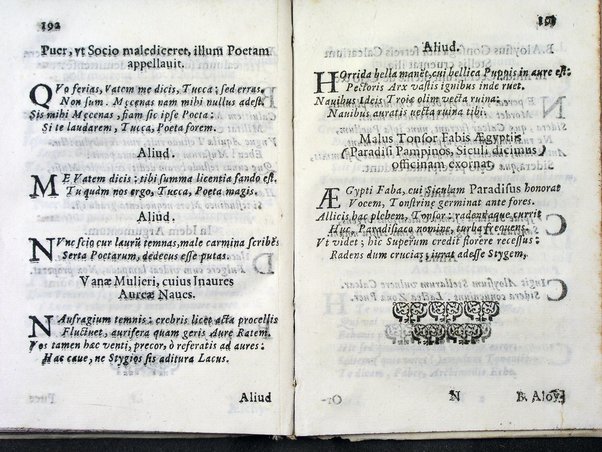 192
Puer, vt Socio malediceret, illum Poetam
appellauit.
QVo ferias, Vatem me dicis, Tucca; sed erras.
Non sum. Męcenas nam mihi nullus adest.
Sis mihi Męcenas, fiam sic ipse Poeta:
Si te laudarem, Tucca, Poeta forem.
Aliud.
ME Vatem dicis: tibi summa licentia fando est.
Tu quàm nos ergo, Tucca, Poeta magis.
Aliud.
NVnc scio cur laurũ temnas, male carmina scribẽs
Serta Poetarum, dedecus esse putas.
Vanæ Mulieri, cuius Inaures
Aureæ Naues.
NAufragium temnis: crebris licet acta procellis
Fluctuet, aurifera quam geris Aure Ratem.
Vos tamen hac venti, precor, ò referatis ad aures:
Hac caue, ne Stygios sis aditura Lacus.
Aliud
193
Aliud.
HOrrida bella manẽt, cui bellica Puppis in aure est:
Pectoris Arx vastis ignibus inde ruet.
Nauibus Ideis Troiæ olim vecta ruina:
Nauibus auratis vecta ruina tibi.
Malus Tonsor Fabis Ægyptiis
(Paradisi Pampinos, Siculi dicimus)
officinam exornat.
ÆGypti Faba, cui Siculam Paradisus honorat
Vocem, Tonstrinę germinat ante fores.
Allicis hac plebem, Tonsor: radendaque currit
Huc, Paradisiaca nomine, turba frequens.
Vt videt; hic Superum credit florere recessus:
Radens dum crucias; iurat adesse Stygem.
N
B. Aloy